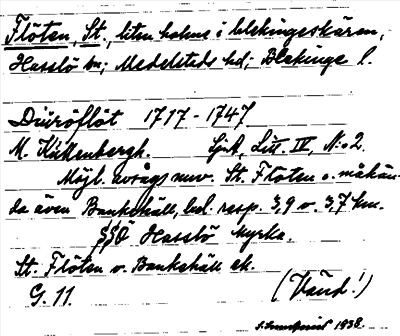 Flöten, St., liten holme i blekingeskären,
Hasslö sn; Medelsteds hd; Blekinge l.
Djuröflöt 1717-1747
M. Klinkenbergh. Sjök, Litt. IV, N:o 2.
Möjl. avsågs nuv. St. Flöten o. måhän-
da även Bankehäll, bel. resp. 3,9 o. 3,7 km.
SSÖ Hasslö kyrka.
St. Flöten o. Bankehäll ek.
G. 11. (Vänd!)
1938.